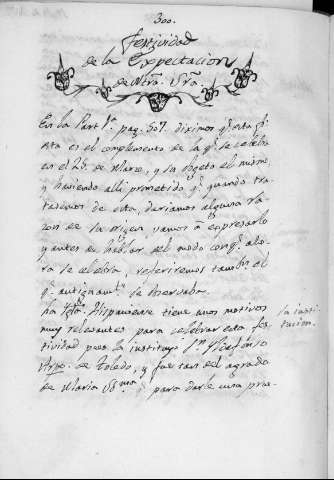 300.
Festividad
de la Expectacion
de Ntrã. Srã
En la Part. 1ª pag. 307. diximos q̃ esta fi-
esta es el complemento de la q̃ se celebra
en el 25. de Marzo, y su objeto el mismo,
y haviendo alli prometido q̃ quando tra-
tasemos de esta, dariamos alguna ra-
zon de su origen vamos â expresarlo
y antes de hablar del modo con q̃ aho-
ra se celebra, referiremos tambⁿ el
q̃ antiguamᵗᵉ se observaba.
La Yglª. Hispanense tiene unos motivos
muy relevantes para celebrar esta fes-
tividad pues la instituyó Sⁿ Yldefonso
Arpo. de Toledo, y fue tan del agrado
de Maria SSmª. q̃ para darle una prue-
Su insti-
tucion.